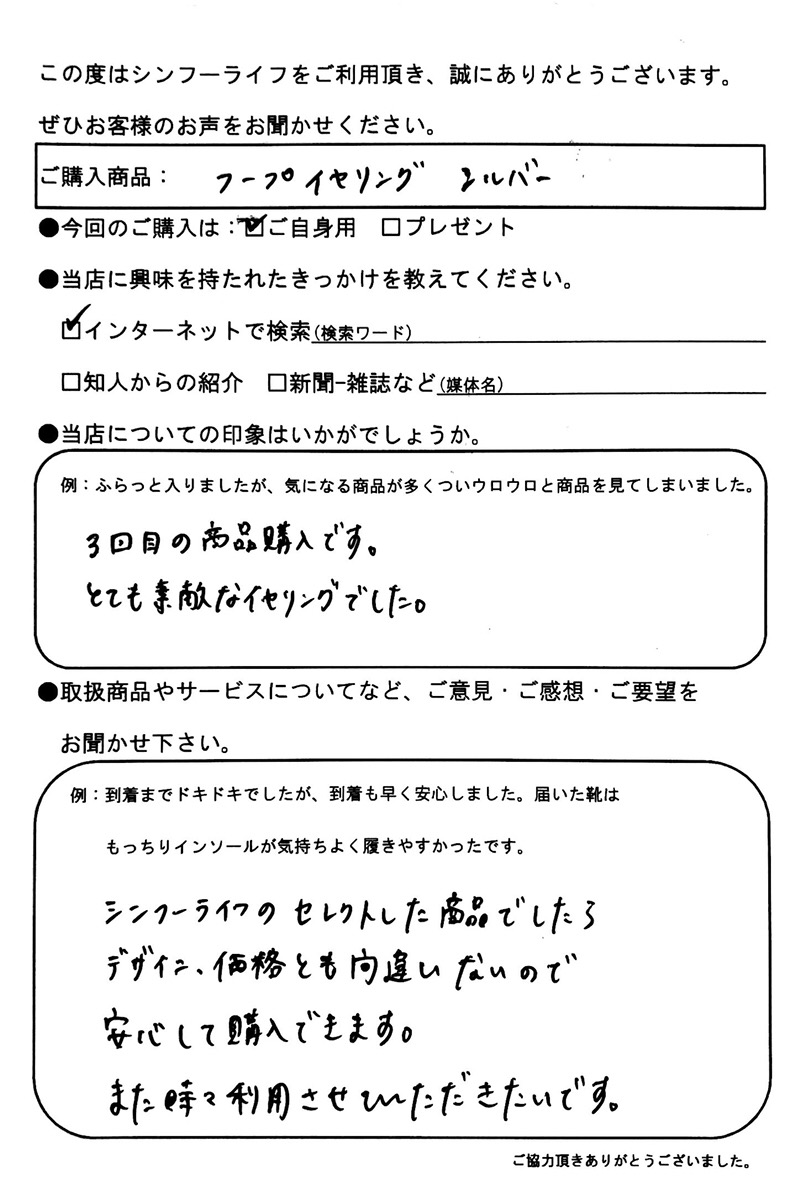 この度はシンフーライフをご利用頂き、誠にありがとうございます。
ぜひお客様のお声をお聞かせください。
ご購入商品： フープイヤリング シルバー
●今回のご購入は：☑ご自身用 □プレゼント
●当店に興味を持たれたきっかけを教えてください。
☑インターネットで検索(検索ワード)
□知人からの紹介 □新聞-雑誌など(媒体名)
●当店についての印象はいかがでしょうか。
例：ふらっと入りましたが、気になる商品が多くついウロウロと商品を見てしまいました。
3回目の商品購入です。
とても素敵なイヤリングでした。
●取扱商品やサービスについてなど、ご意見・ご感想・ご要望を
お聞かせ下さい。
例：到着までドキドキでしたが、到着も早く安心しました。届いた靴は
もっちりインソールが気持ちよく履きやすかったです。
シンフーライフのセレクトした商品でしたら
デザイン、価格とも間違いないので
安心して購入できます。
また時々利用させていただきたいです。
ご協力頂きありがとうございました。